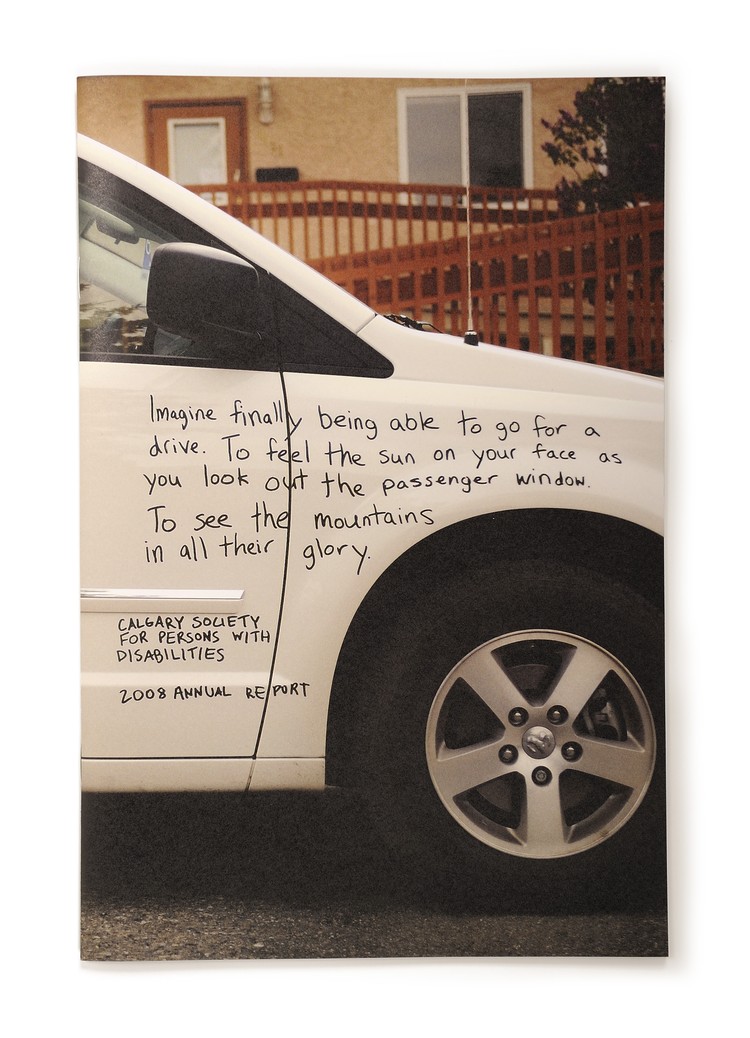 Imagine finally being able to go for a
drive. To feel the sun on your face as
you look out the passenger window.
To see the mountains
in all their glory.
CALGARY SOCIETY
FOR PERSONS WITH
DISABILITIES
2008 ANNUAL REPORT